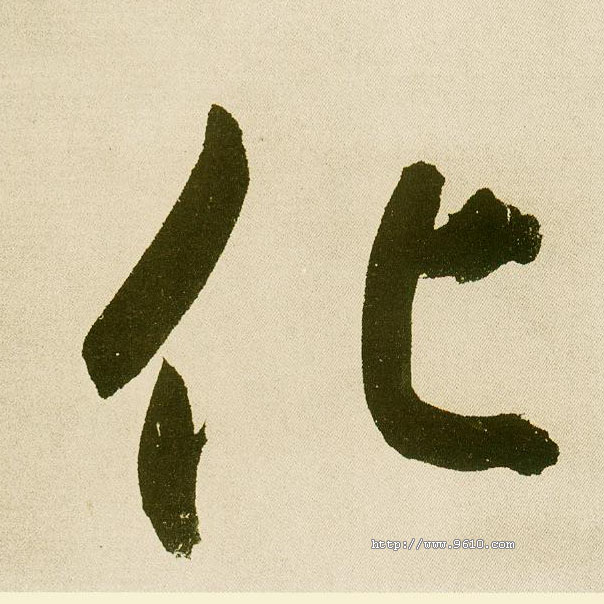 化
http://www.9610.com